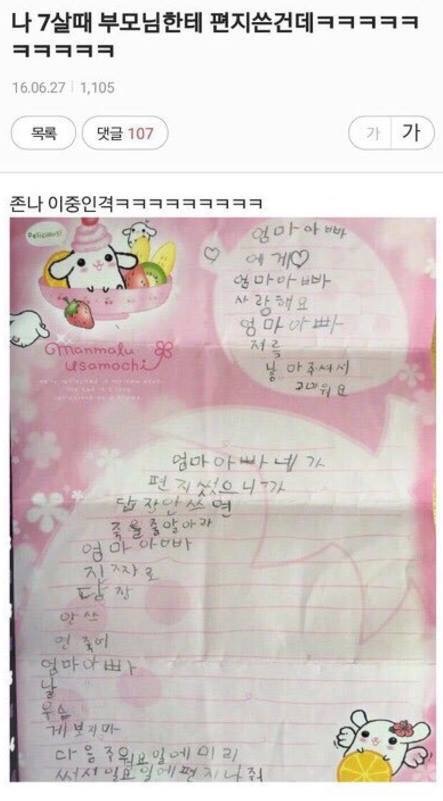 나 7살때 부모님한테 편지쓴건데ㅋㅋㅋㅋㅋ
ㅋㅋㅋㅋㅋ
16.06.27 1,105
목록 댓글 107 가 가
존나 이중인격ㅋㅋㅋㅋㅋㅋㅋㅋㅋ
Delicious!
엄마아빠
에게♡
엄마아빠
사랑해요
엄마아빠
저를
낳아주셔서
고마워요
manmalu
usamochi
엄마아빠네가
편지썼으니가
답장안쓰면
죽을줄알아라
엄마아빠
진짜로
답장
안쓰
면죽어
엄마아빠
날
우습
게보지마
다음주월요일에미리
써서일요일에편지나줘